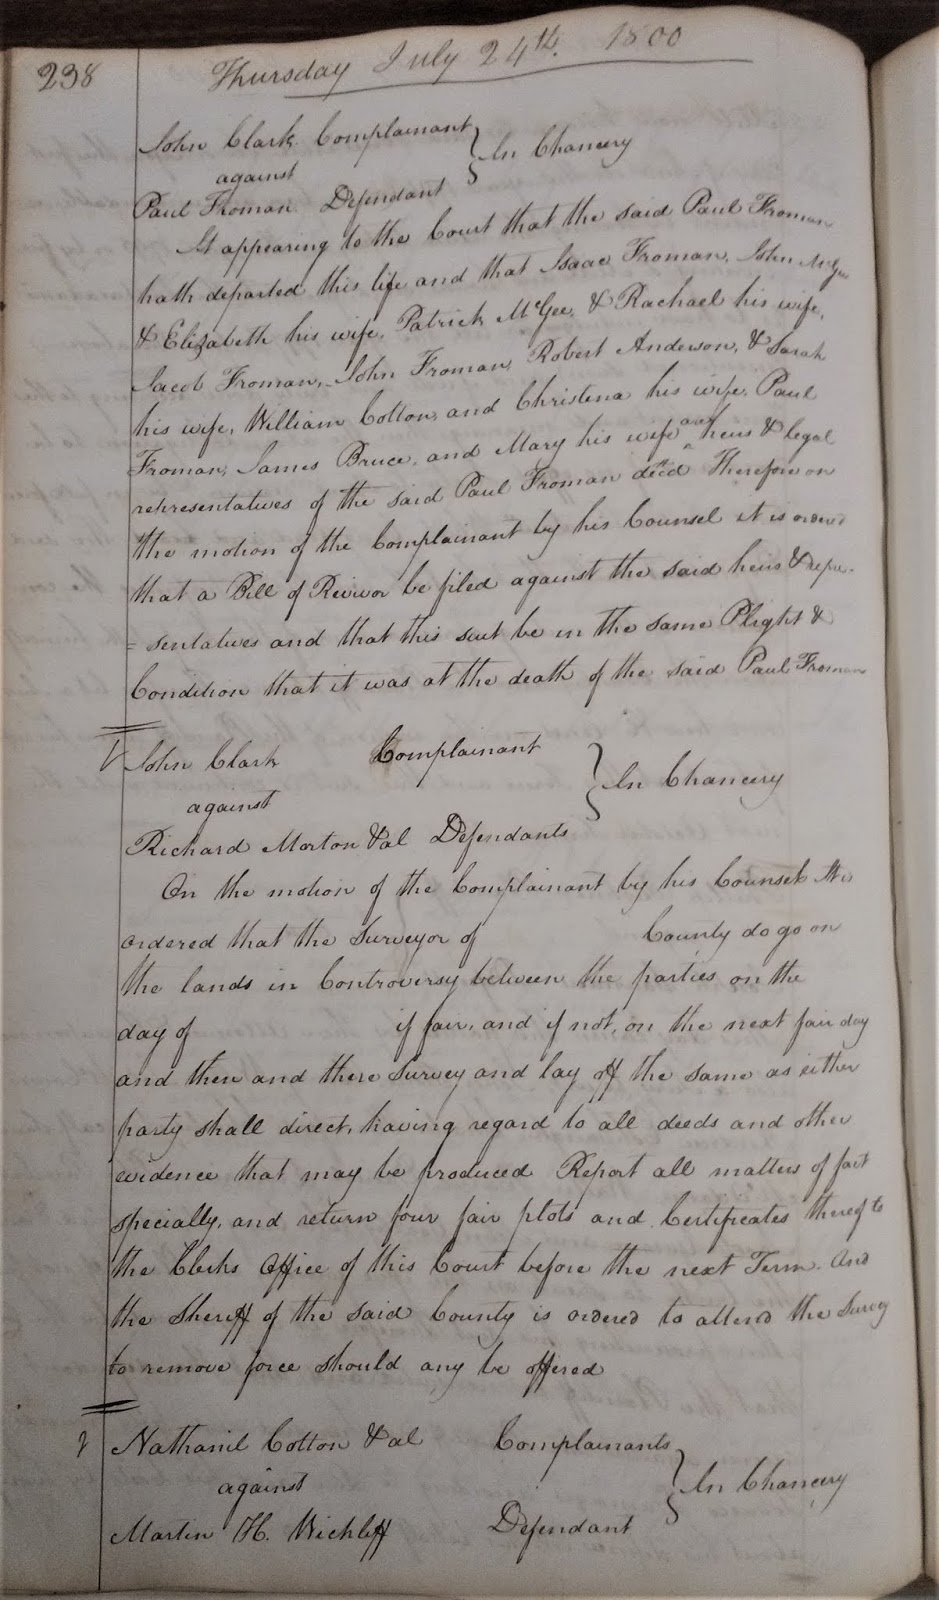 238
Thursday July 24th. 1800
John Clark Complainant
against
In Chancery
Paul Froman Defendant
It appearing to the Court that the said Paul Froman
hath departed this life and that Isaac Froman, John McGee
& Elizabeth his wife, Patrick McGee, & Rachael his wife,
Jacob Froman, John Froman, Robert Anderson, & Sarah
his wife, William Cotton, and Christena his wife, Paul
Froman, James Bruce, and Mary his wife are heirs & legal
representatives of the said Paul Froman decd Therefore on
the motion of the Complainant by his Counsel it is ordered
that a Bill of Revivor be filed against the said heirs & repre-
=sentatives and that this suit be in the same Plight &
Condition that it was at the death of the said Paul Froman
John Clark Complainant
against
In Chancery
Richard Morton &al Defendants
On the motion of the Complainant by his Counsel it is
ordered that the Surveyor of County do go on
the lands in Controversy between the parties on the
day of if fair, and if not, on the next fair day
and then and there Survey and lay off the same as either
party shall direct, having regard to all deeds and other
evidence that may be produced Report all matters of fact
specially, and return four fair plots and Certificates thereof to
the Clerks Office of this Court before the next Term. And
the Sheriff of the said County is ordered to attend the Survey
to remove force should any be offered
Nathaniel Cotton &al Complainants
against
In Chancery
Martin H. Wickliff Defendant